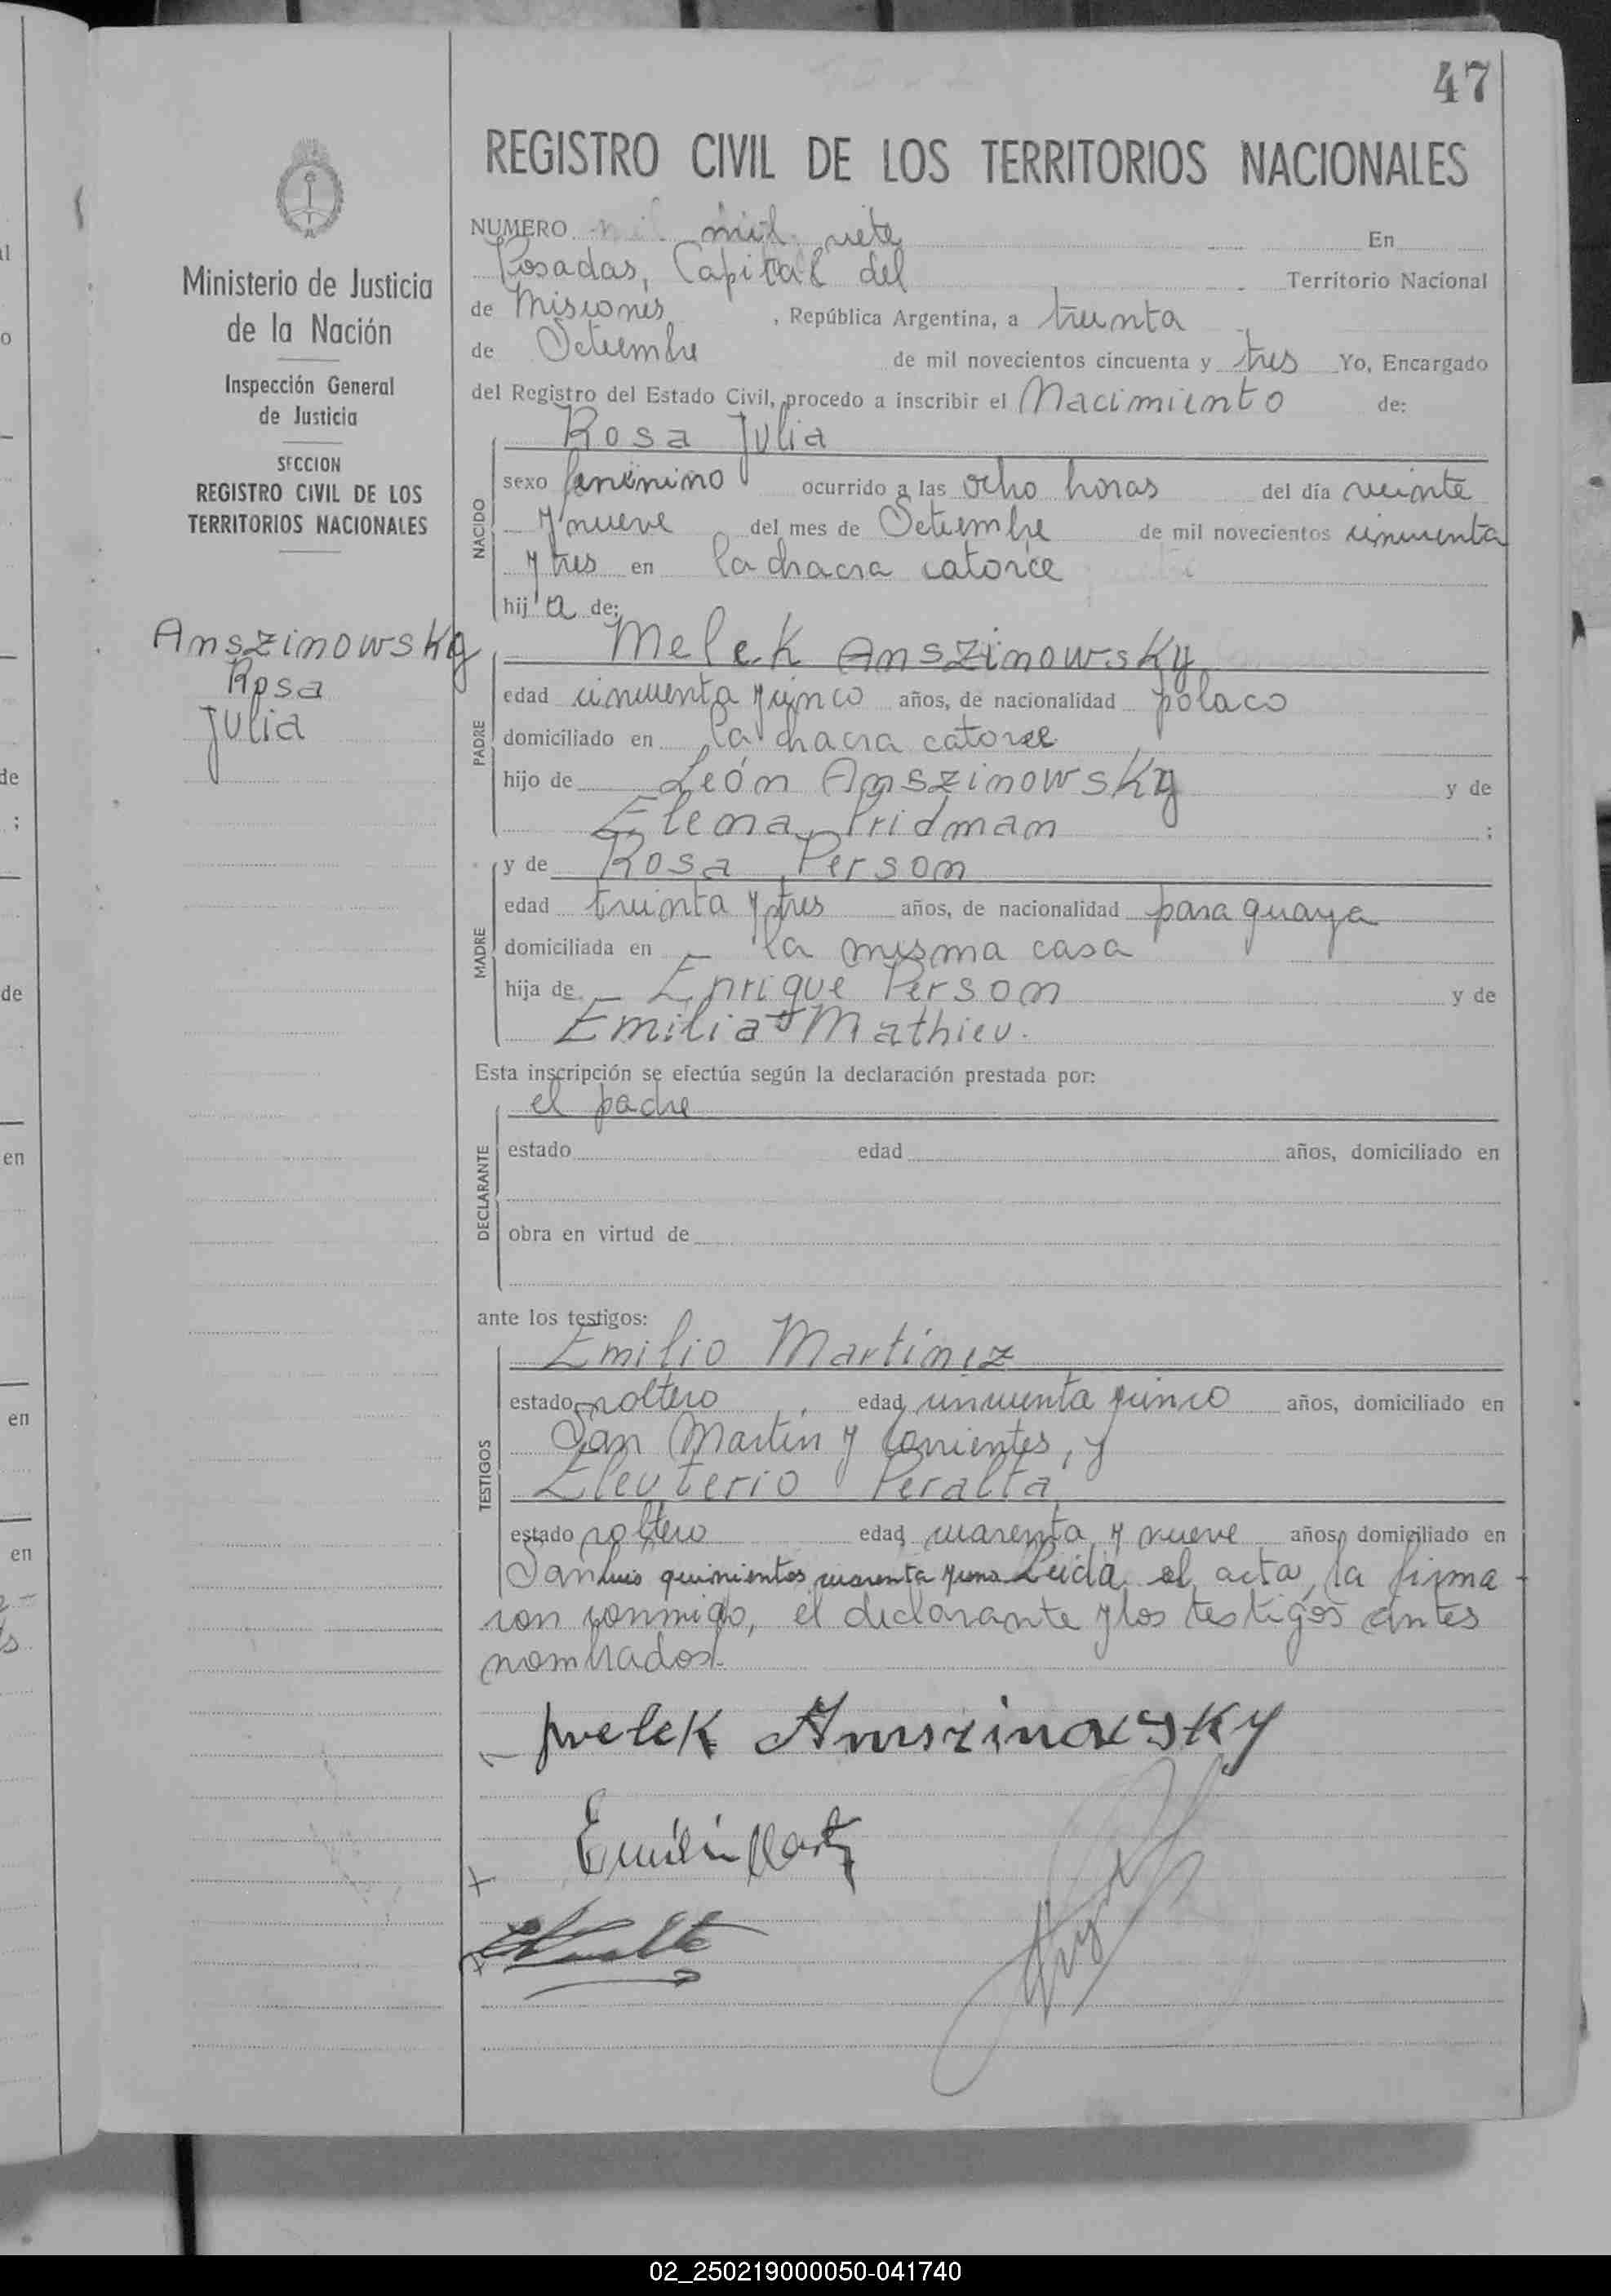 47
REGISTRO CIVIL DE LOS TERRITORIOS NACIONALES
Ministerio de Justicia
de la Nación
Inspección General
de Justicia
SECCION
REGISTRO CIVIL DE LOS
TERRITORIOS NACIONALES
Anszinowsky
Rosa
Julia
NUMERO mil mil siete En
Posadas, Capital del Territorio Nacional
de Misiones, República Argentina, a treinta
de Setiembre de mil novecientos cincuenta y tres Yo, Encargado
del Registro del Estado Civil, procedo a inscribir el Nacimiento de:
NACIDO
Rosa Julia
sexo femenino ocurrido a las ocho horas del día veinte
y nueve del mes de Setiembre de mil novecientos cincuenta
y tres en la chacra catorce
hij a de:
PADRE
Melek Anszinowsky
edad cincuenta y cinco años, de nacionalidad polaco
domiciliado en la chacra catorce
hijo de León Anszinowsky y de
Elena Fridman ;
MADRE
y de Rosa Person
edad treinta y tres años, de nacionalidad paraguaya
domiciliada en la misma casa
hija de Enrique Person y de
Emilia Mathieu.
Esta inscripción se efectúa según la declaración prestada por:
DECLARANTE
el padre
estado edad años, domiciliado en
obra en virtud de
ante los testigos:
TESTIGOS
Emilio Martínez
estado soltero, edad cincuenta y cinco años, domiciliado en
San Martín y Corrientes, y
Eleuterio Peralta,
estado soltero edad cuarenta y nueve años, domiciliado en
San Luis quinientos cuarenta y uno Leida el acta, la firma-
ron conmigo, el declarante y los testigos antes
nombrados.-
melek Anszinowsky
Emilio Mart
02_250219000050-041740